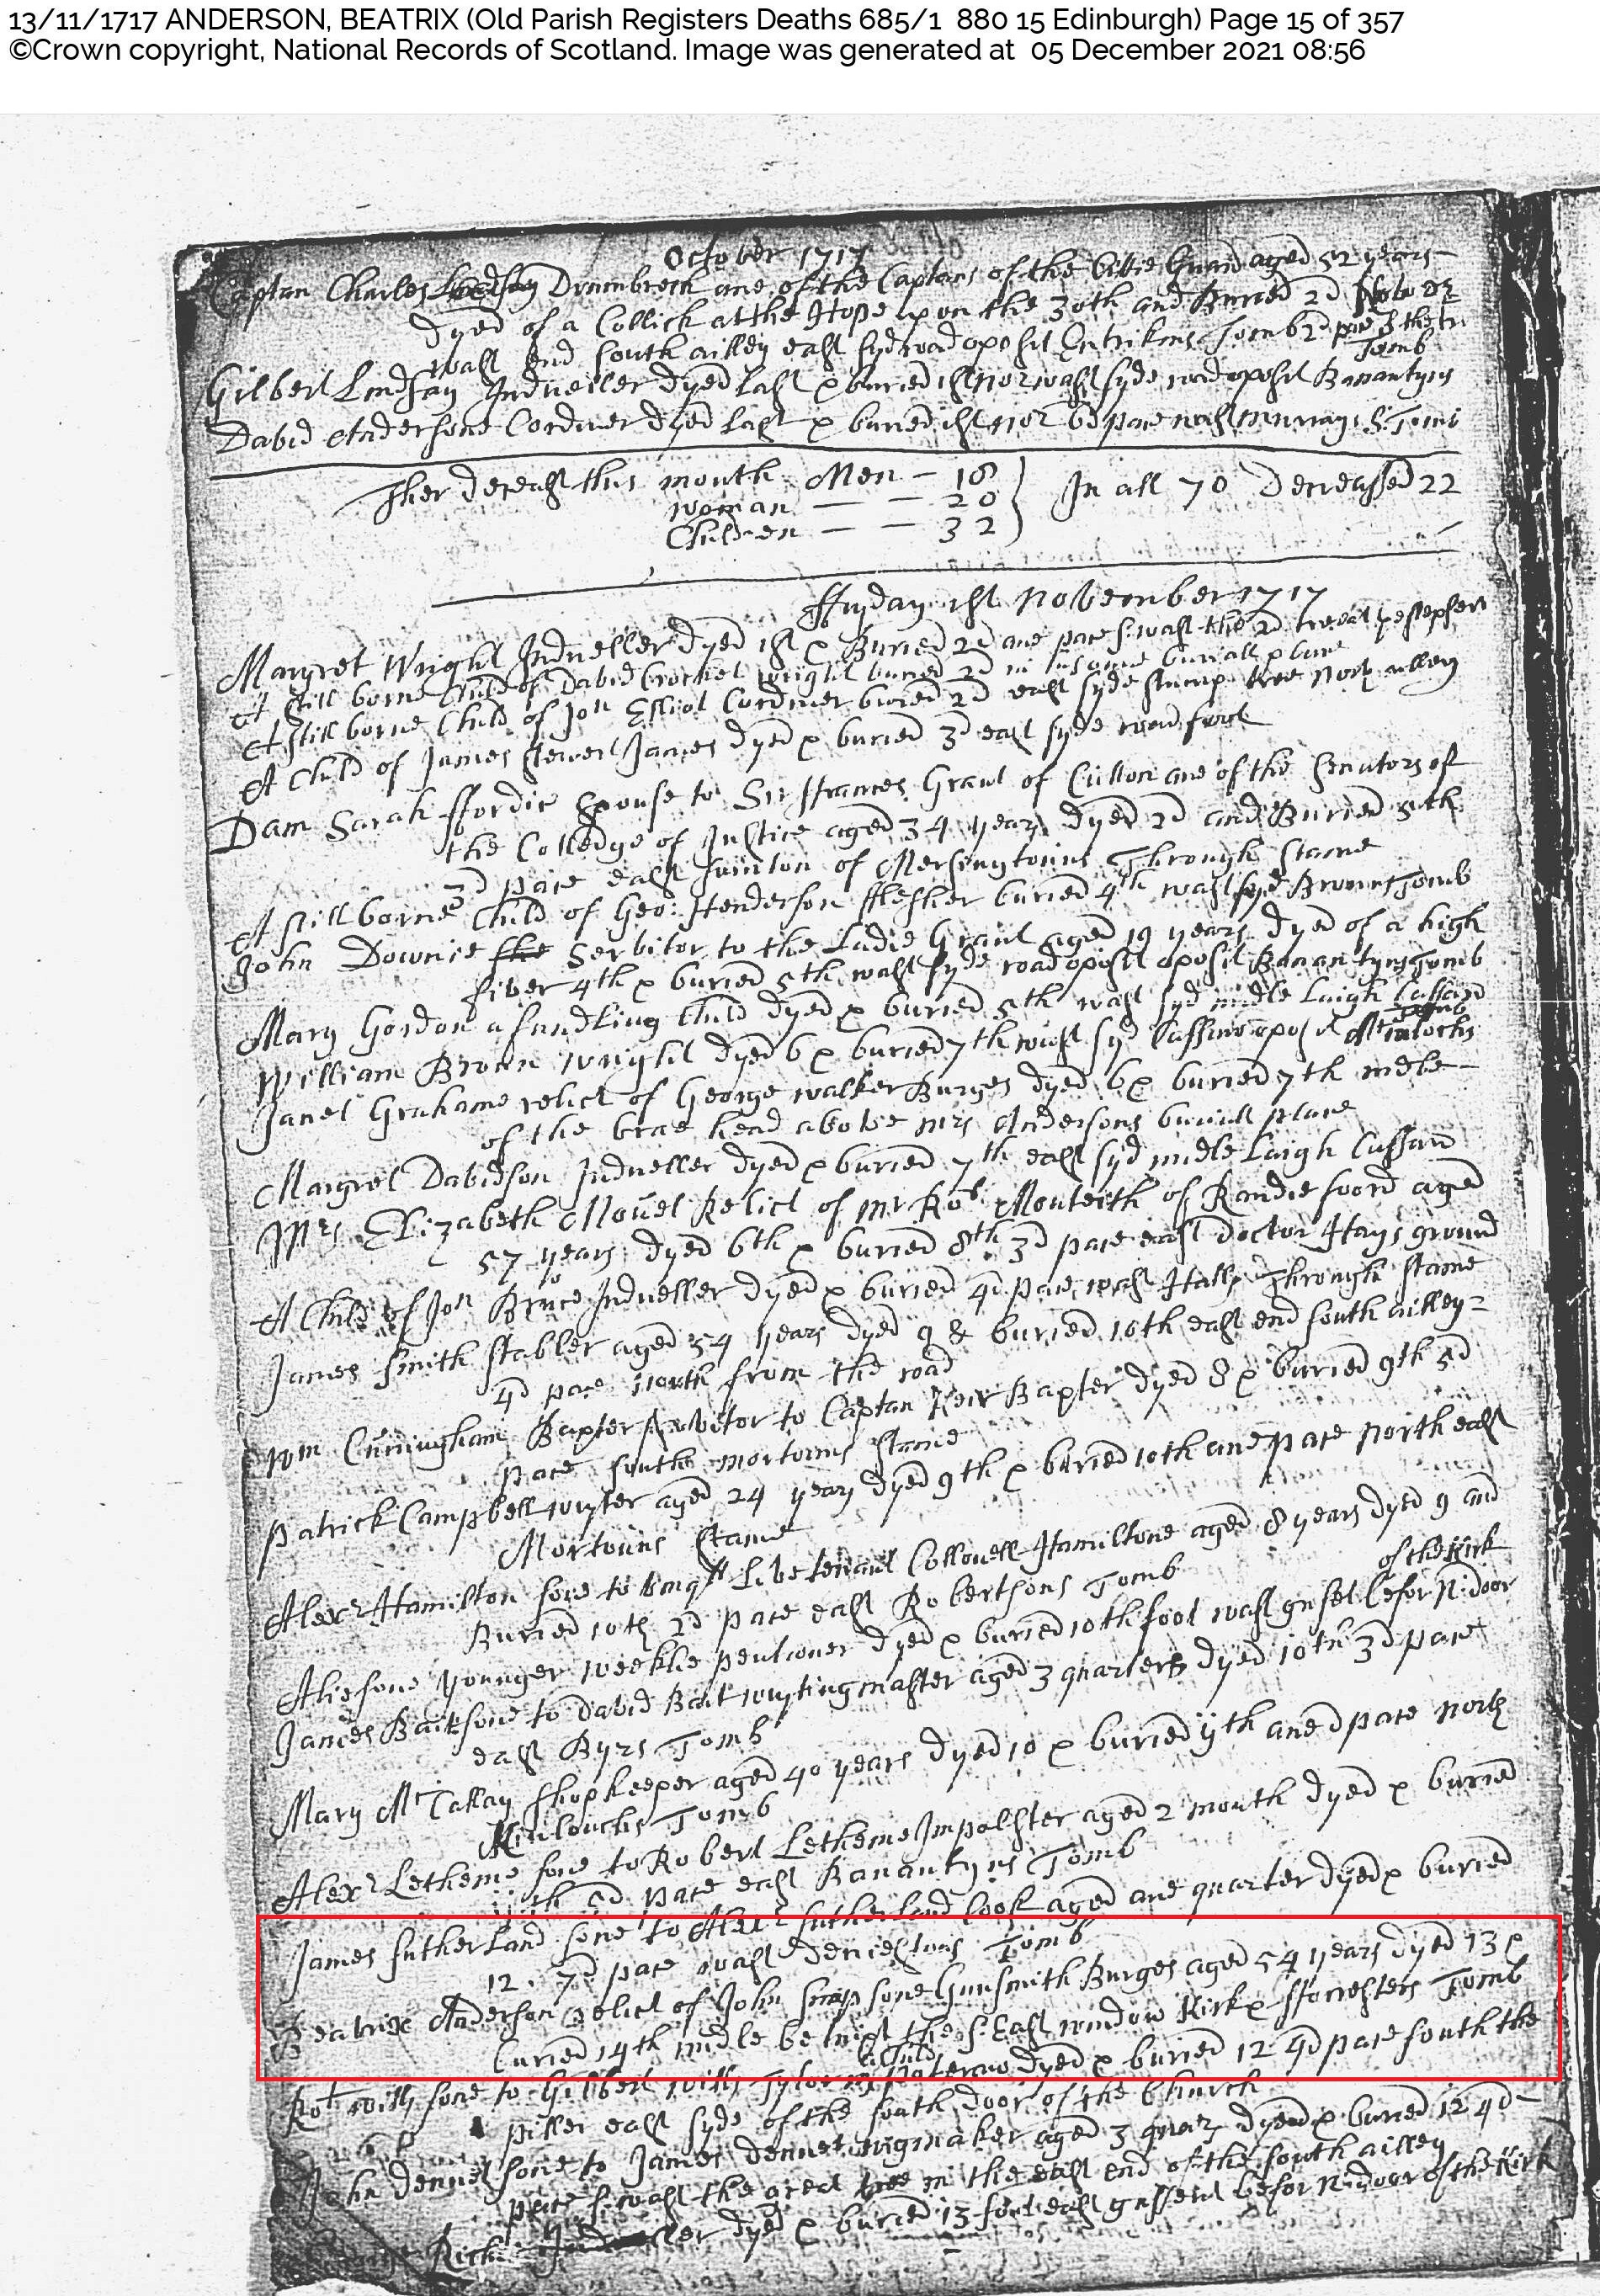 13/11/1717 ANDERSON, BEATRIX (Old Parish Registers Deaths 685/1 880 15 Edinburgh) Page 15 of 357
©Crown copyright, National Records of Scotland. Image was generated at 05 December 2021 08:56
October 1717
Captan Charles Drumbreck ane of the Captans of the Cittie Guard aged 52 years
dyed of a Collick at the upon the 30th and Buried 2d
wast end south ailley east syd road oposit Tomb 2d pace
Tomb
Gilbert Lindsay Indueller dyed last & buried 1st wast syde road oposit Banantyns
David Andersone Cordiner dyed last & buried 1st 6d pace wast Murrays Tomb
Ther deceast this month Men — 18
woman — — 20 In all 70 Decreassed 22
Children — — 32
ffryday 1st November 1717
Margret Wright Indueller dyed 1st & Buried 2d ane pace wast the 2d
A still borne Child of David Crocket wright buried 2d in burial place
A still borne Child of Jon Elliot Cordiner buried 2d east syde stump tree north ailley
A Child of James Stewert James dyed & buried 3d east syde road foot
Dam Sarah ffordie Spouse to Sir ffrances Grant of Cullon ane of the Senators of
the Colledge of Justice aged 34 years dyed 2d and Buried 5th
3d pace east Suinton of Mersingtouns Through Stane
A still borne Child of Geo: Henderson fflesher buried 4th wast syd Browns Tomb
John Downie Servitor to the Ladie Grant aged 19 years dyed of a high
fiver 4th & buried 5th wast syde road oposit oposit Banantyns Tomb
Mary Gordon a fundling Child dyed & buried 5th wast syd midle Laigh Cassard
William Brown wright dyed 6 & buried 7th wast syd Cassino oposit Kinlochs
Tomb
Janet Grahame relict of George walker Burges dyed 6 & buried 7th midle
of the brae head above mrs Andersons buriall place
Margret Davidson Indueller dyed & buried 7th east syd midle Laigh Cassard
Mrs Elizabeth Movet Relict of mr Rot Monteith of Randie foord aged
57 years dyed 6th & buried 8th 3d pace east Doctor Hays ground
A Child of Jon Bruce Indueller dyed & buried 4d pace wast Halls Through stane
James Smith Stabler aged 54 years dyed 9 & buried 10th east end south ailley
4d pace north from the road
Wm Cuningham Baxter servitor to Captan Keir Baxter dyed 8 & buried 9th 5d
pace south mortouns stane
Patrick Campbell wryter aged 24 years dyed 9th & buried 10th ane pace north east
Mortouns Stane
Alexr Hamilton sone to Livetenant Collonell Hamiltone aged 8 years dyed 9 and
Buried 10th 2d pace east Robertsons Tomb
of the Kirk
Aliesone younger weeklie pentioner dyed & buried 10th foot wast gusset befor N: door
James Bait sone to David Bait wryting master aged 3 quarters dyed 10th 3d pace
east Byrs Tomb
Mary McCallay shopkeeper aged 40 years dyed 10 & buried 11th aned pace north
Kinlouchs Tomb
Alexr Letheme sone to Robert Letheme Impolster aged 2 month dyed & buried
11th 5d pace east Banantyns Tomb
James Sutherland sone to Alexr Sutherland Cook aged ane quarter dyed & buried
12. 7d pace wast Tomb
Beatrix Anderson relict of John Simpsone Gunsmith Burges aged 54 years dyed 13 &
buried 14th midle betwixt the S: East window Kirk & Tomb
a Child
Rot willy sone to Gilbert willy Tylor in dyed & buried 12 4d pace south the
piller east syde of the south door of the Church
John Dennet sone to James Dennet wigmaker aged 3 quarr dyed & buried 12 4d
pace S: wast the great tree in the east end of the south ailley
dyed & buried 13 foot east gusset befor N: door of the Kirk